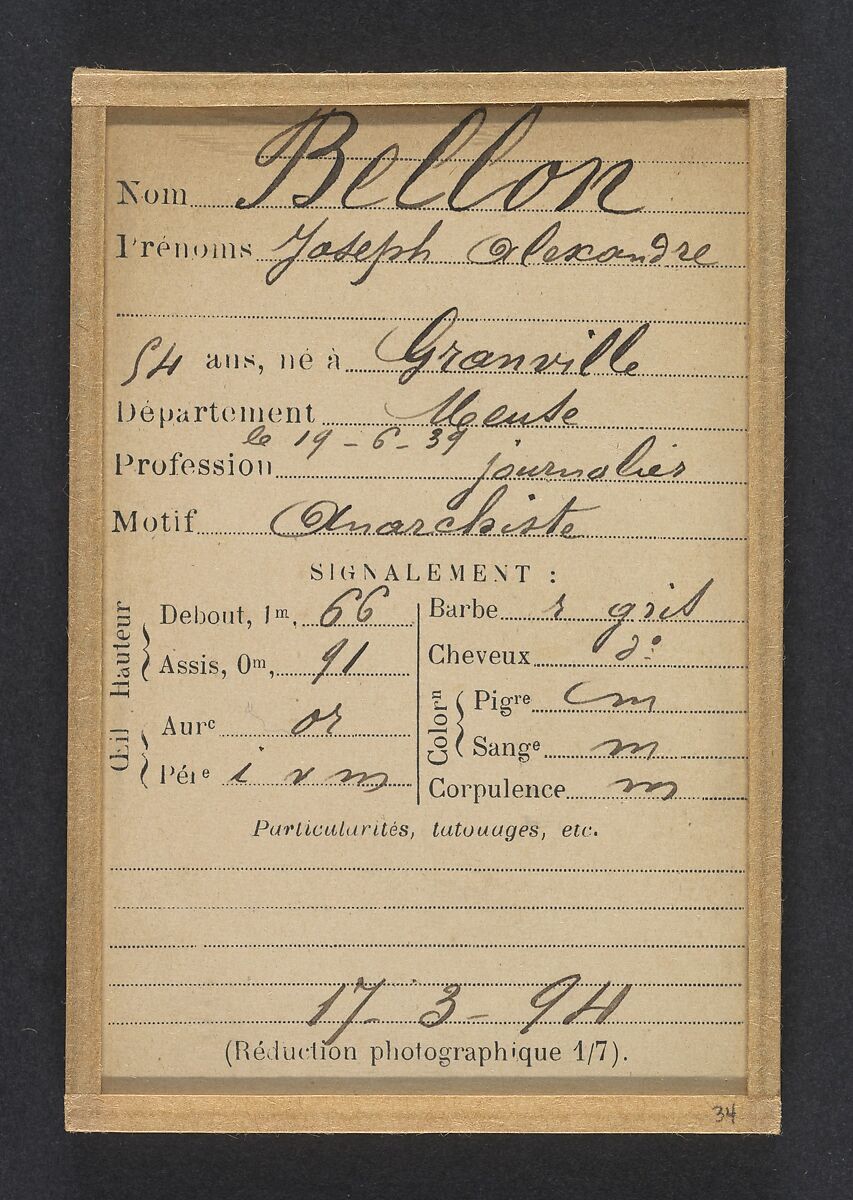 Nom Bellon
Prénoms Joseph Alexandre
54 ans, né à Granville
Département Meuse
le 19-6-39
Profession journalier
Motif Anarchiste
SIGNALEMENT :
Hauteur
Debout, 1m, 66
Assis, 0m, 91
Œil
Aurc or
Pére i v m
Barbe r gris
Cheveux do
Colorn
Pigre m
Sange m
Corpulence m
Particularités, tatouages, etc.
17-3-94
(Réduction photographique 1/7).
34